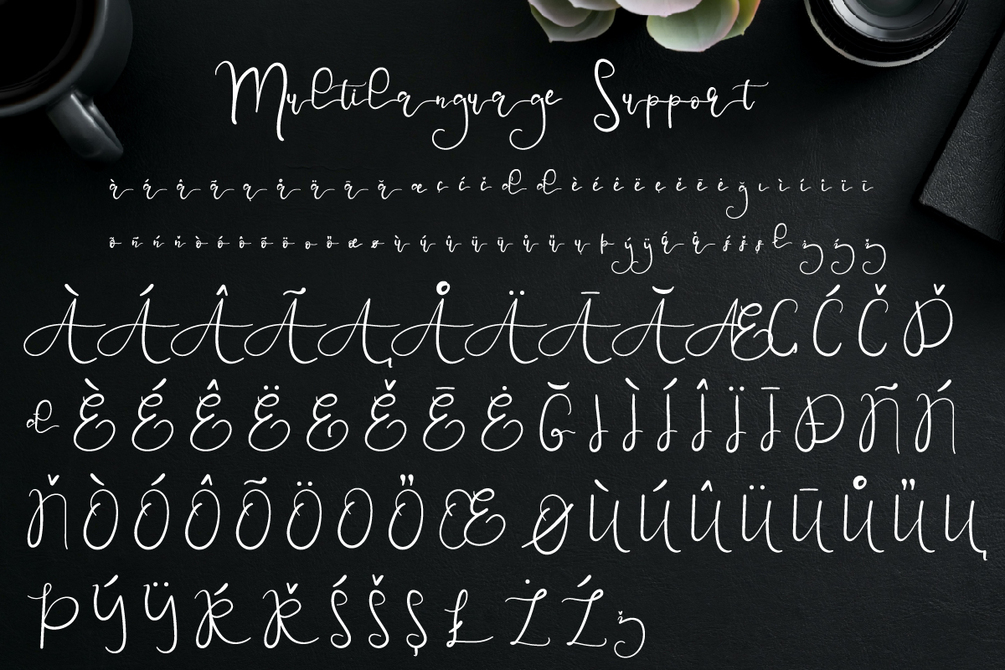 Multilanguage Support
à á â ã ą å ä ā ă æ ç ć č ď đ è é ê ë ę ě ē ė ğ ı ì í î ï ī
ð ñ ń ň ò ó ô õ ö ő œ ø ù ú û ü ū ů ű ų þ ý ÿ ŕ ř ś š ş ł ż ź ž
À Á Â Ã Ą Å Ä Ā Ă Æ Ç Ć Č Ď
đ È É Ê Ë Ę Ě Ē Ė Ğ I Ì Í Î Ï Ī Đ Ñ Ń
Ň Ò Ó Ô Õ Ö O Ő Œ Ø Ù Ú Û Ü Ū Ů Ű Ų
Þ Ý Ÿ Ŕ Ř Ś Š Ş Ł Ż Ź ž